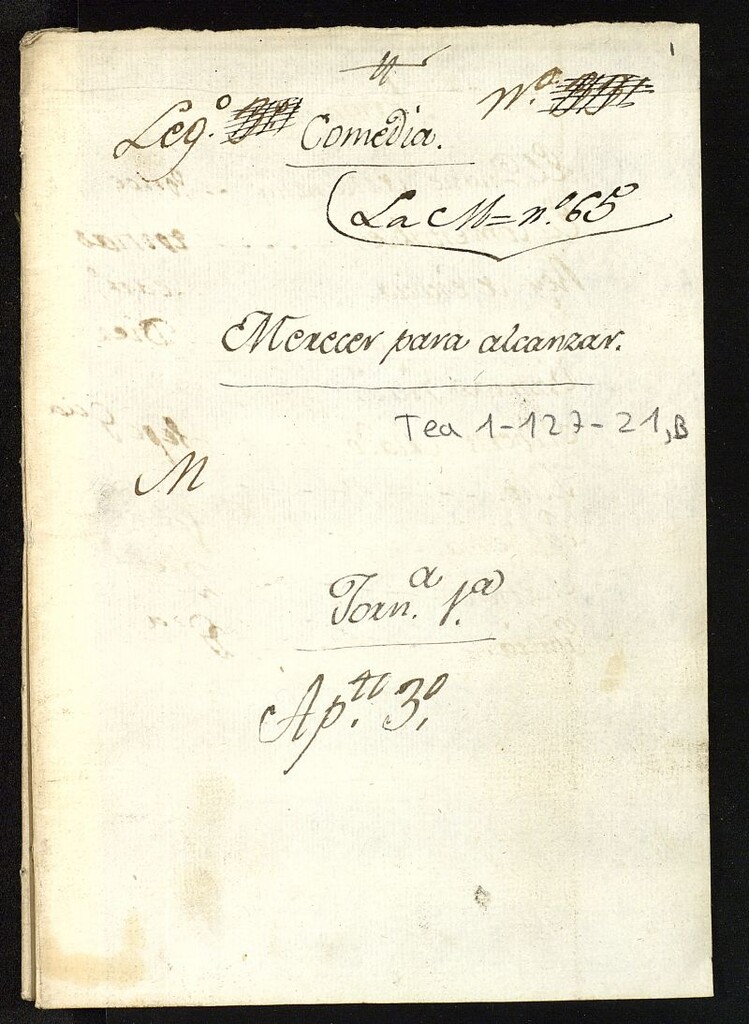 1
Leg.º Nº.
Comedia.
La M= nº. 65
Merecer para alcanzar.
Tea 1-127-21, B
M
Jorn.ª 1.ª
Ap.tt 3º.